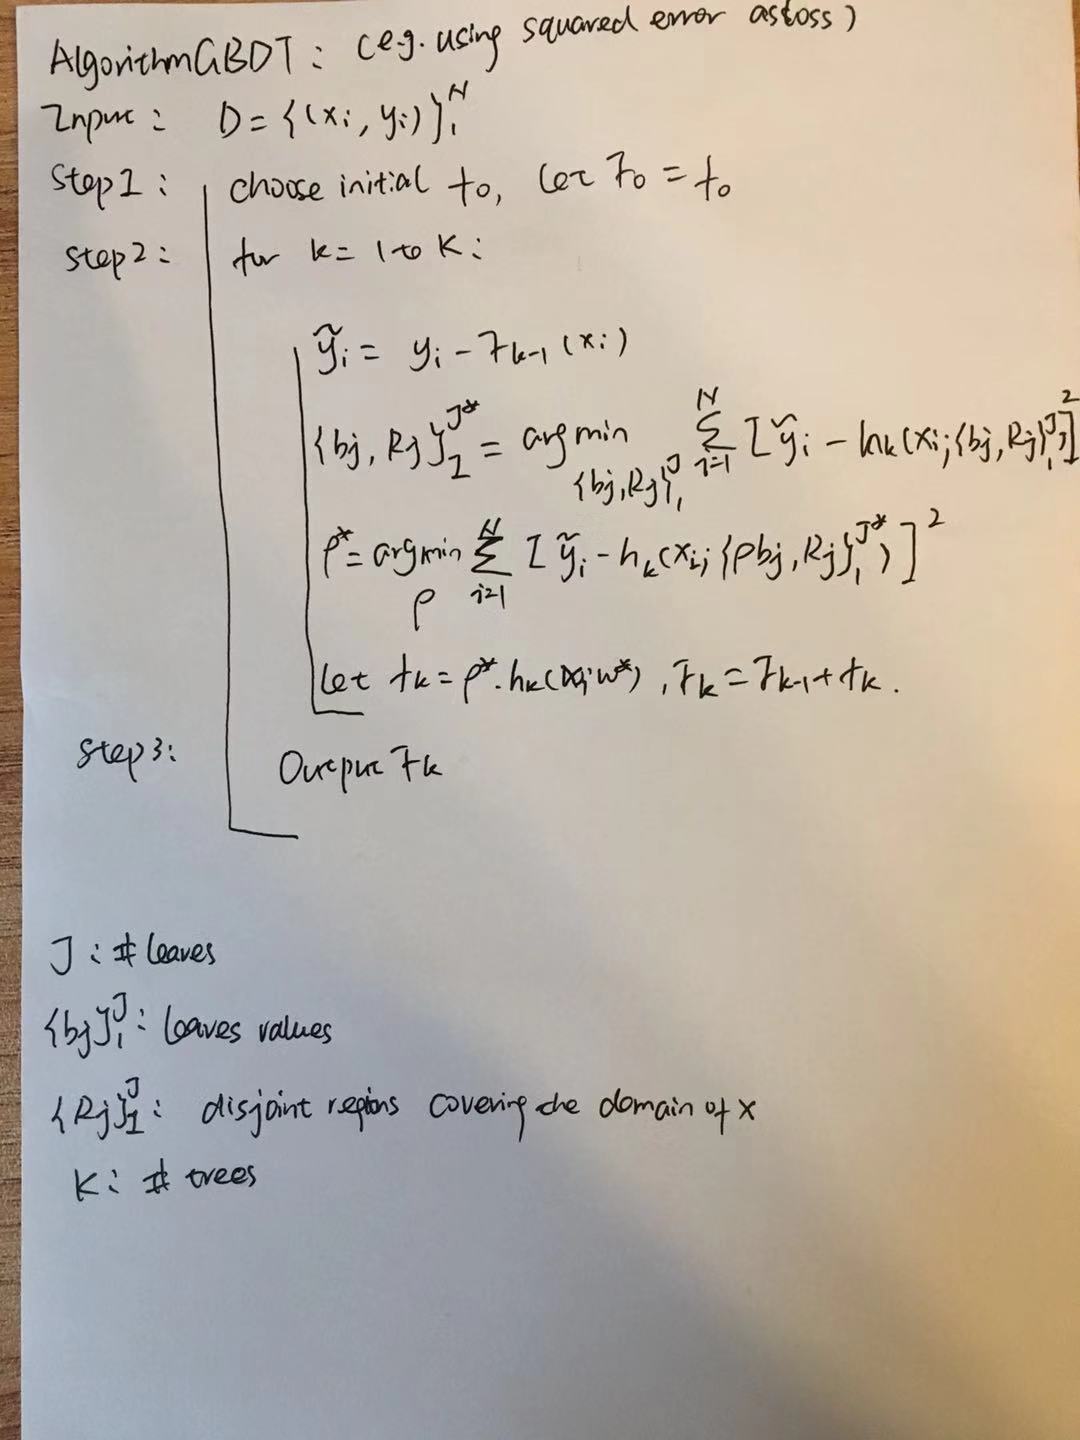 Algorithm GBDT: (e.g. using squared error as loss)
Input: D = {(xi, yi)}₁ᴺ
Step 1: choose initial f₀, let F₀ = f₀
Step 2: for k = 1 to K:
ỹᵢ = yᵢ - Fₖ₋₁(xᵢ)
{bj, Rj}₁ᴶ* = argmin_{{bj, Rj}₁ᴶ} Σᵢ₌₁ᴺ [ỹᵢ - hₖ(xᵢ; {bj, Rj}₁ᴶ)]²
ρ* = argmin_ρ Σᵢ₌₁ᴺ [ỹᵢ - hₖ(xᵢ; {ρbj, Rj}₁ᴶ*)]²
Let fₖ = ρ*·hₖ(x; w*), Fₖ = Fₖ₋₁ + fₖ.
Step 3: Output Fₖ
J: # leaves
{bj}₁ᴶ: leaves values
{Rj}₁ᴶ: disjoint regions covering the domain of x
K: # trees